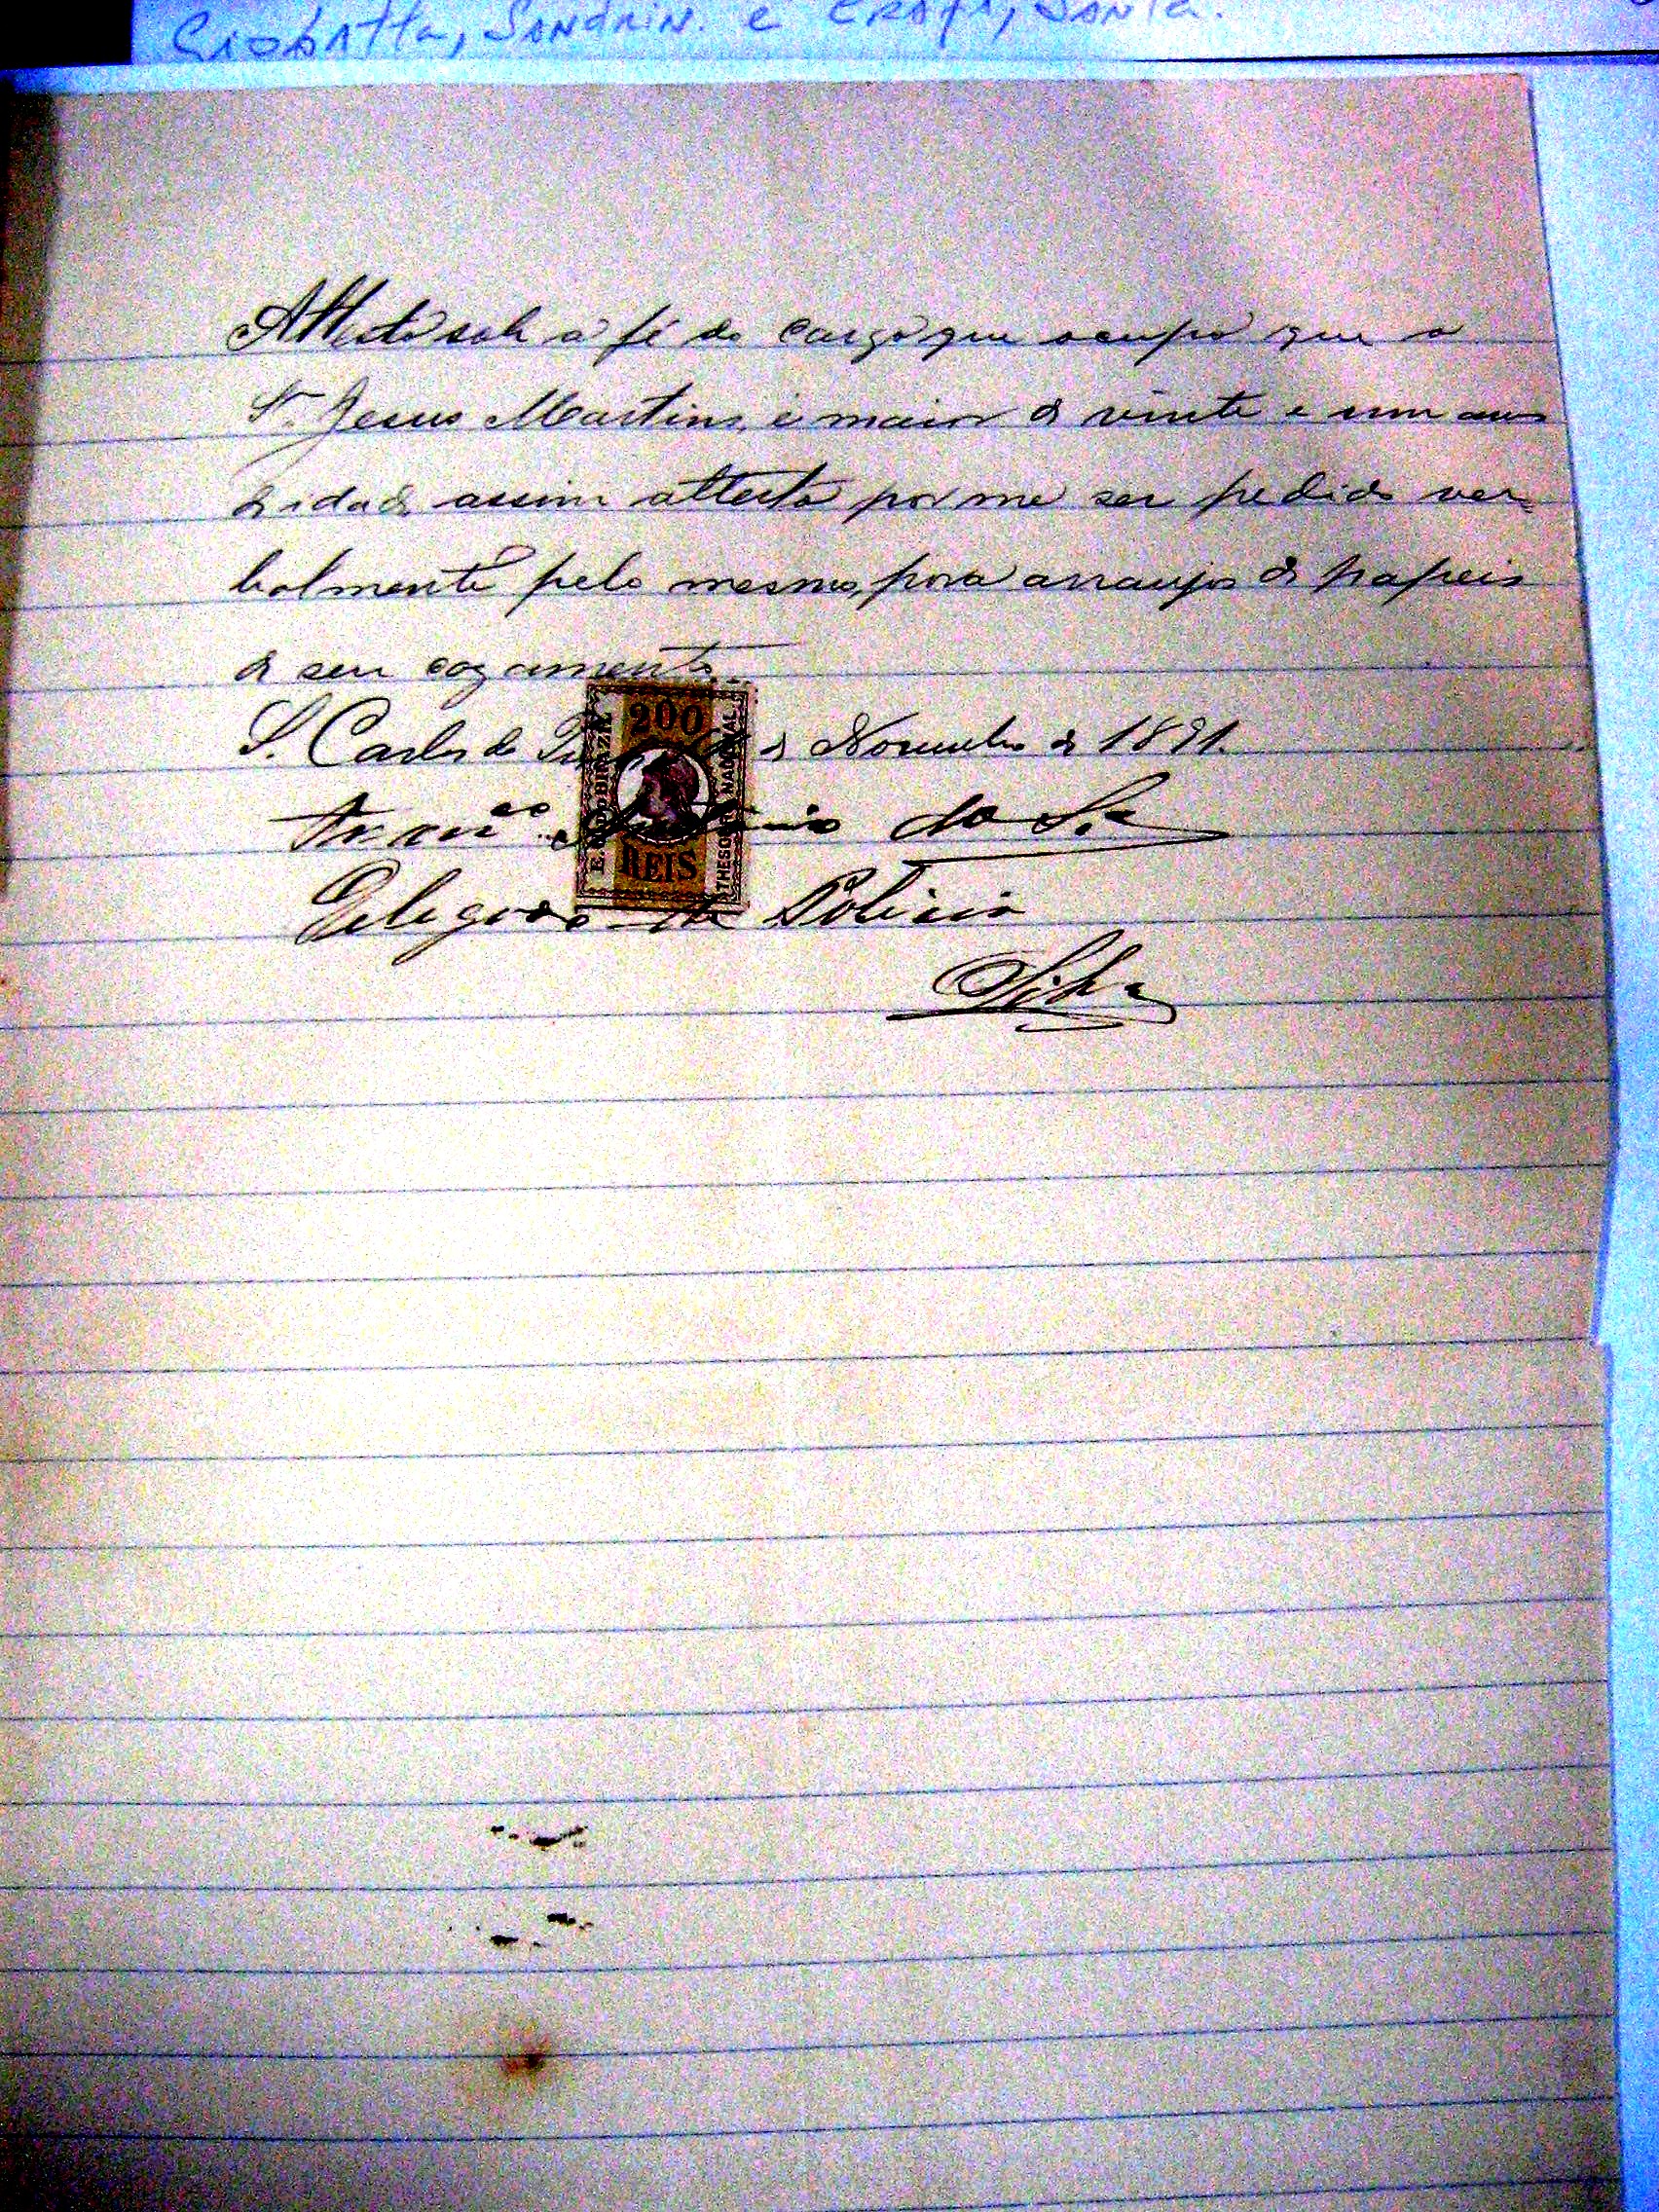 Giobatta, Sandrin. e
Attesto sob a fé do cargo que occupo que o
Sr. Jesus Martins, é maior de vinte e um annos
de idade, assim attesto por me ser pedido ver=
balmente pelo mesmo, para arranjos de papeis
de seu cazamento
S. Carlos do de Novembro de 1891.
200
REIS
THESOURO NACIONAL
Franco. Antonio da Sa.
Delegado de Policia
Silva